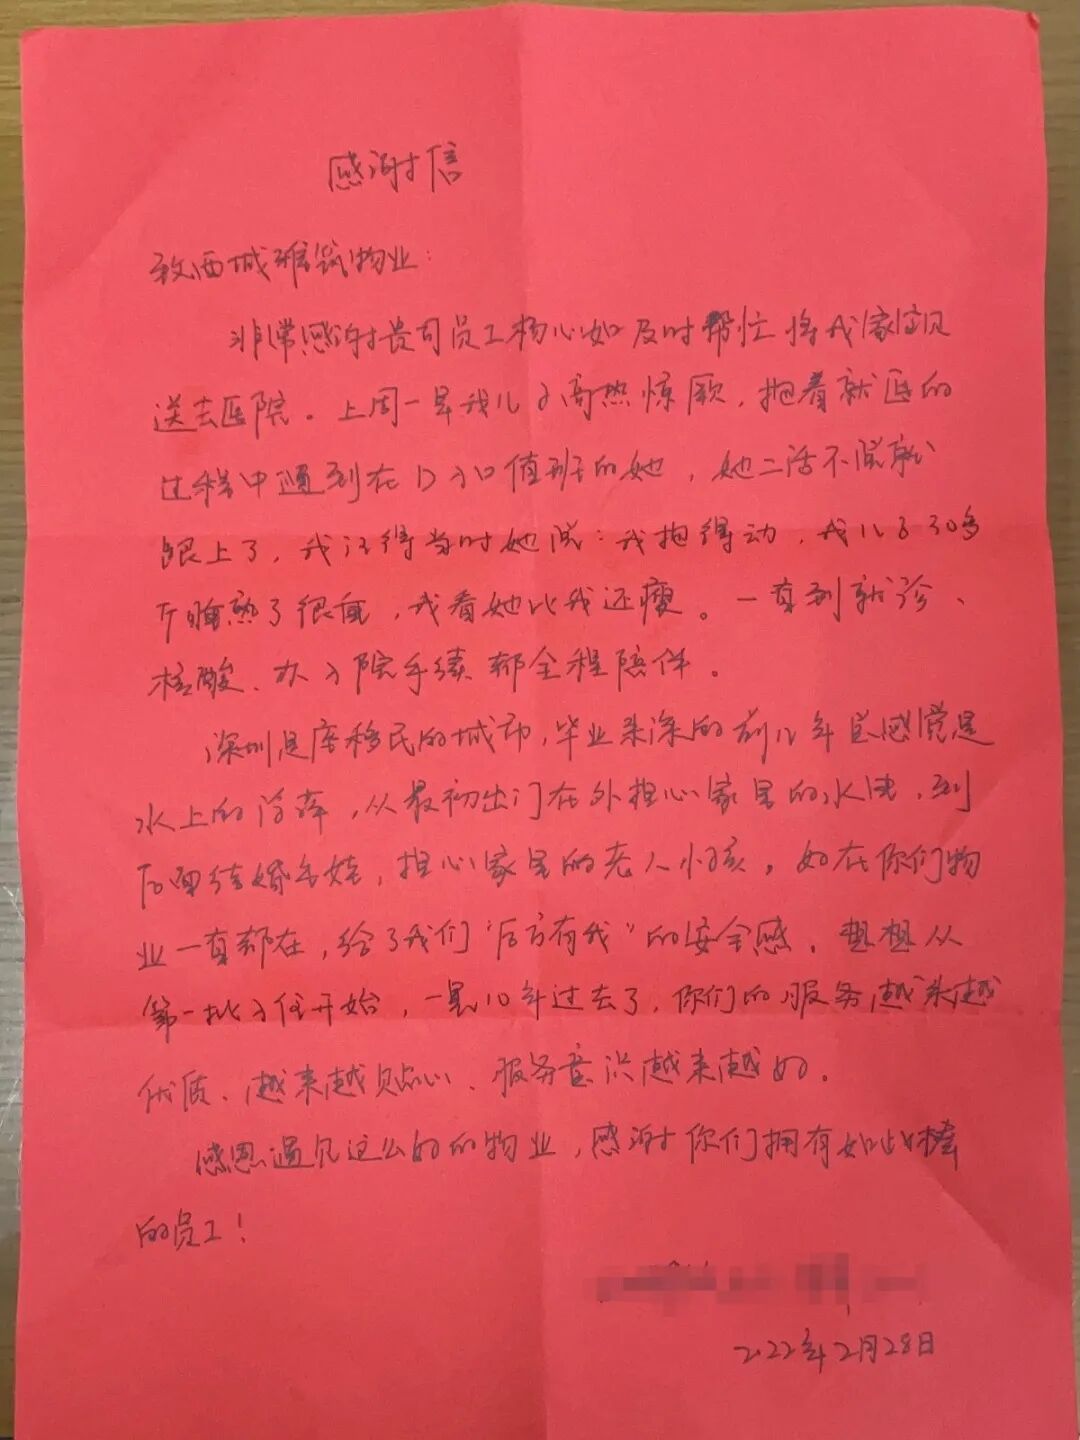 感谢信
致西城雅筑物业：
非常感谢贵司员工杨心如及时帮忙将我家宝贝
送去医院。上周一早我儿子高热惊厥，抱着就医的
过程中遇到在D入口值班的她，她二话不说就
跟上了，我记得当时她说：我抱得动，我儿子30多
斤睡熟了很重，我看她比我还瘦。一直到就诊、
核酸、办入院手续都全程陪伴。
深圳是座移民的城市，毕业来深的前几年总感觉是
水上的浮萍，从最初出门在外担心家里的水电，到
后面结婚生娃，担心家里的老人小孩。好在你们物
业一直都在，给了我们"后方有我"的安全感。想想从
第一批入住开始，一晃10年过去了，你们的服务越来越
优质、越来越贴心、服务意识越来越好。
感恩遇见这么好的物业，感谢你们拥有如此棒
的员工！
2022年2月28日